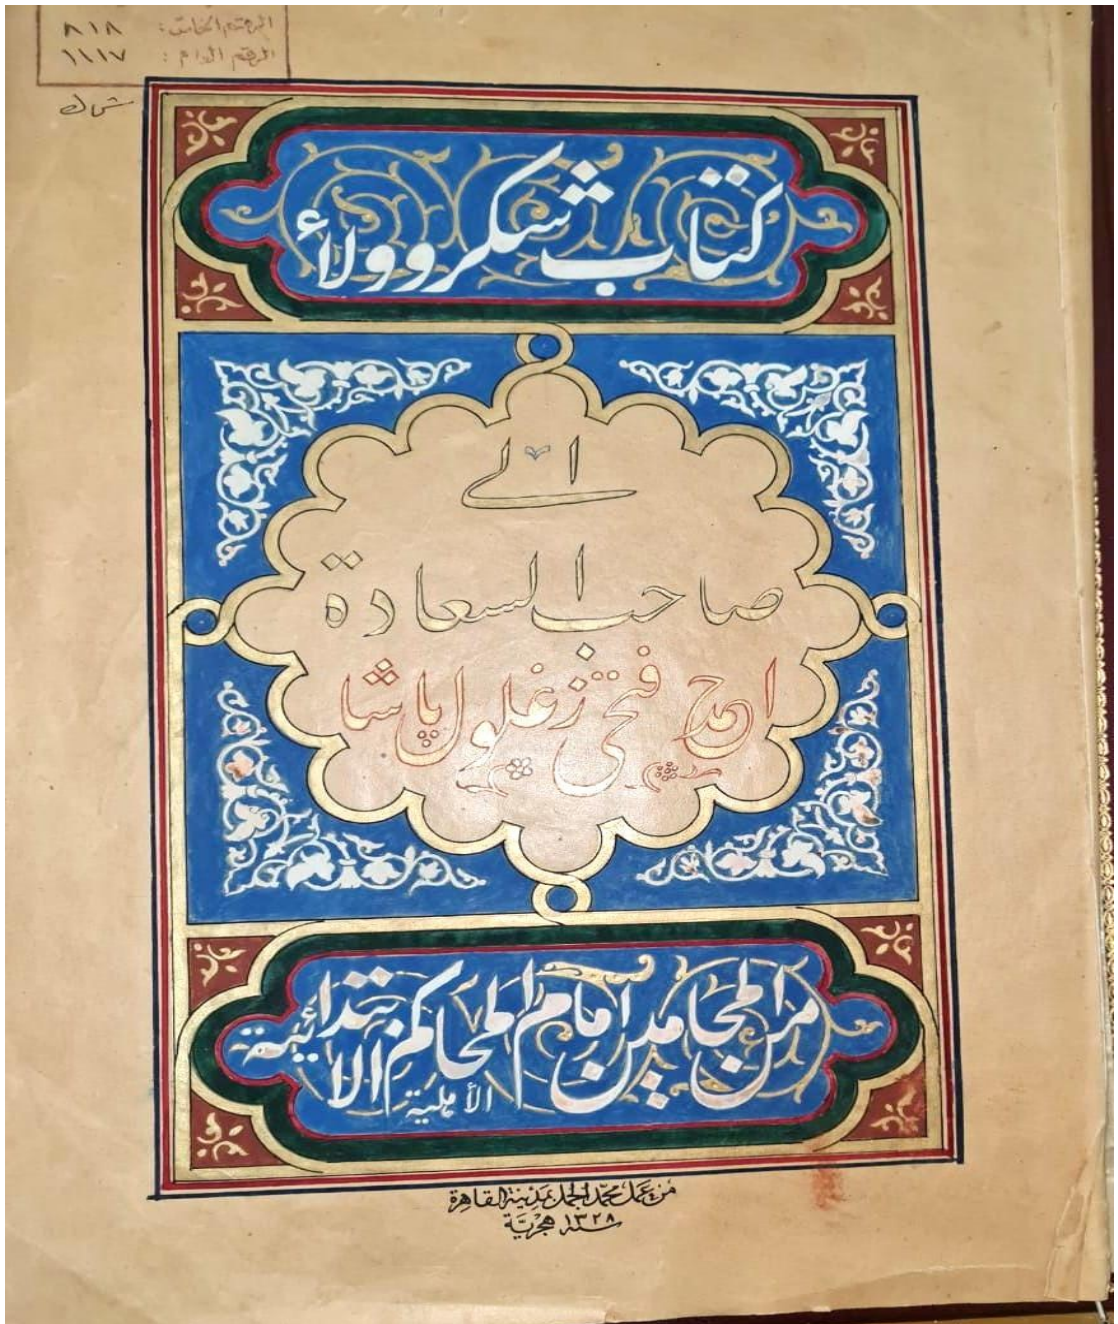 الرقم الخاص: ٨١٨
الرقم العام: ١١١٧
كتاب شكر وولاء
الى
صاحب السعادة
احمد فتحي زغلول پاشا
من المحامين امام المحاكم الابتدائية
الأهلية
من عمل محمد بمدينة القاهرة
سنة ١٣٢٨ هجرية